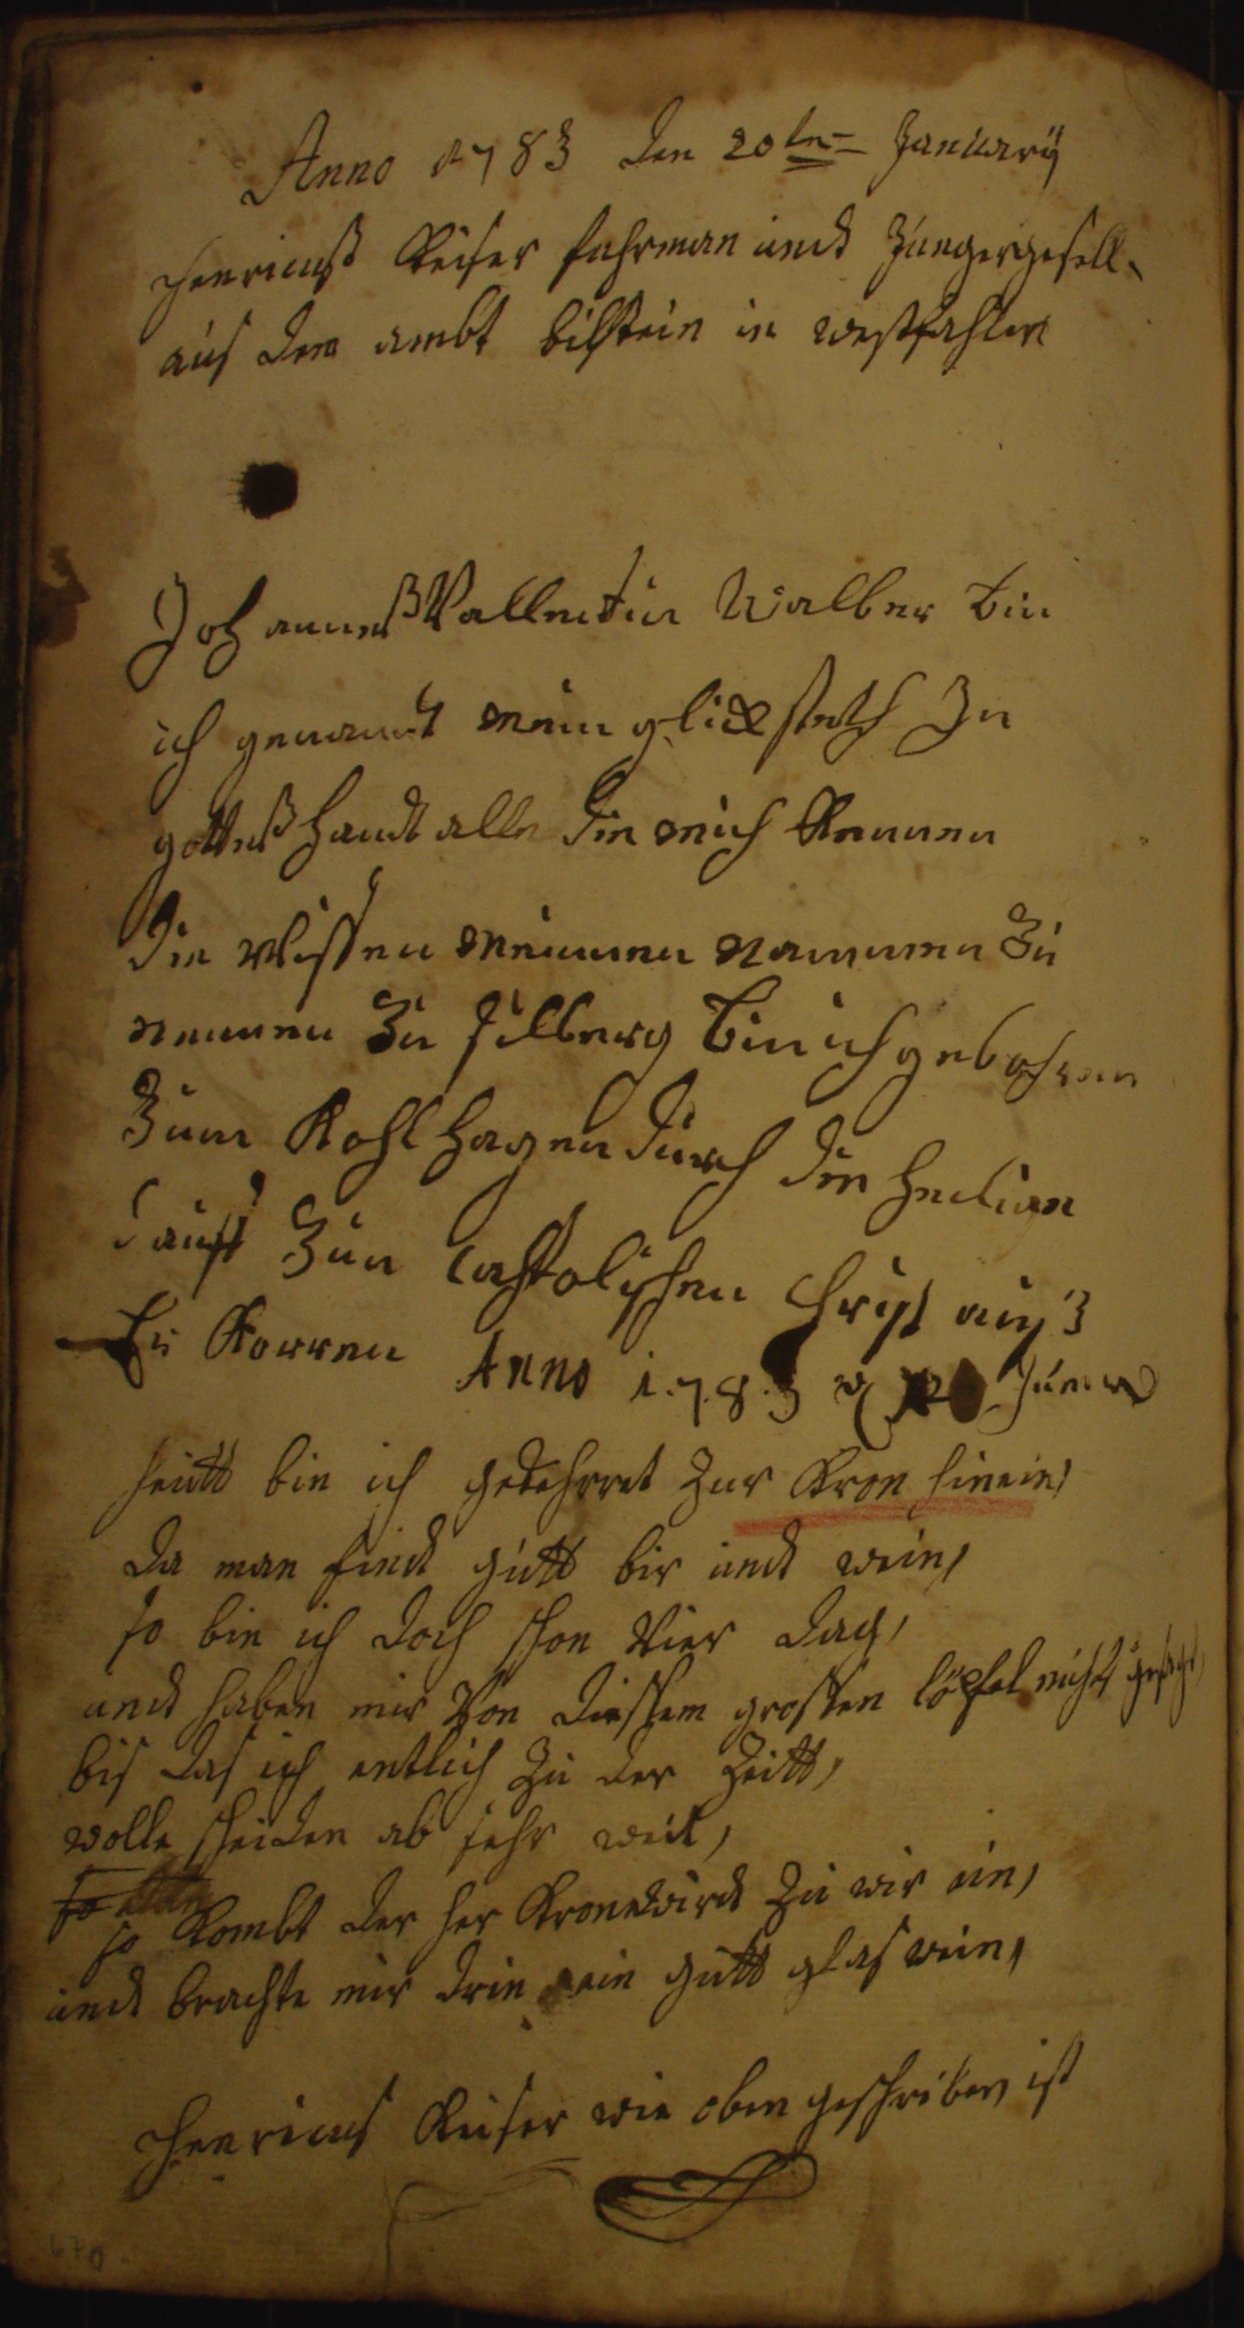 Anno 1783 den 20ten January
Henricus Keiser fuhrman undt Jungergesell
aus dem ambt bilstein in westfahlen
Johannes Vallentin Walber bin
ich genandt mein glick steth In
gottes handt alle die mich kennen
die wissen meinnen nammen Zu
nennen Zu silberg bin ich gebohren
Zum Kohlhagen durch die heilige
dauff Zum Catholischen Christ auß
Er Korren Anno 1783
heutt bin ich gekehrret Zur Kron hinein,
da man findt gutt bir undt wein,
so bin ich doch schon Vier dag,
undt haben mir Von diessem grossen löffel nicht gesagt,
bis das ich entlich Zu der Zeitt,
wolle scheiden ab sehr weit,
so
so kombt der her Kronewirdt Zu mir ein,
undt brachte mir drin ein gutt glas wein,
Henricus Keiser wie oben geschriben ist
670